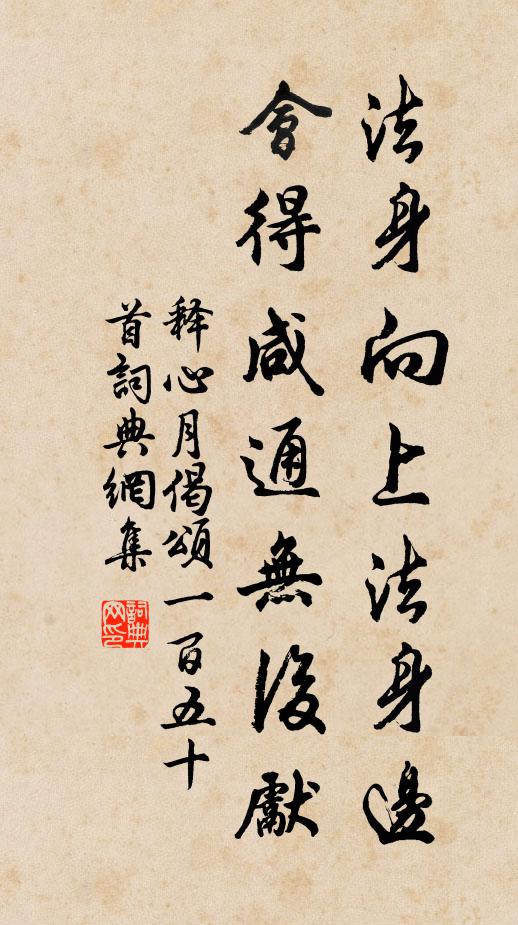 法身向上法身邊
會得咸通無後獻
释心月偈頌一百五十
首詞典網集
詞典网印